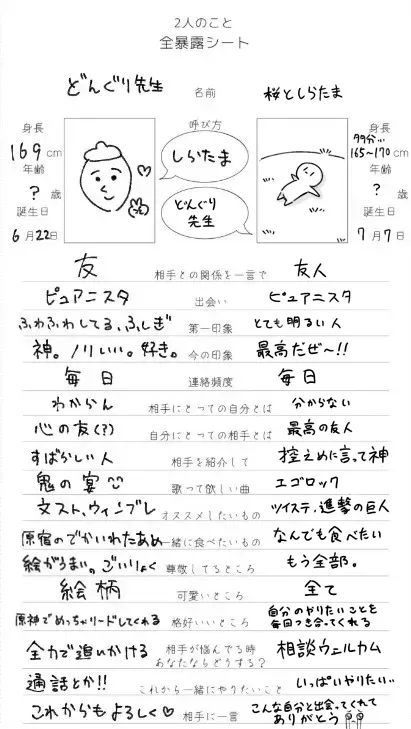 2人のこと
全暴露シート
どんぐり先生 名前 桜としらたま
身長 呼び方 身長
169cm しらたま 多分… 165~170cm
年齢 年齢
?歳 どんぐり先生 ?歳
誕生日 誕生日
6月22日 7月7日
友 相手との関係を一言で 友人
ピュアニスタ 出会い ピュアニスタ
ふわふわしてる、ふしぎ 第一印象 とても明るい人
神。ノリいい。好き。 今の印象 最高だぜ~!!
毎日 連絡頻度 毎日
わからん 相手にとっての自分とは 分からない
心の友(?) 自分にとっての相手とは 最高の友人
すばらしい人 相手を紹介して 控えめに言って神
鬼の宴 歌って欲しい曲 エゴロック
文スト、ウィンブレ オススメしたいもの ツイステ、進撃の巨人
原宿のでかいわたあめ 一緒に食べたいもの なんでも食べたい
絵がうまい。ごいりょく 尊敬してるところ もう全部。
絵柄 可愛いところ 全て
原神でめっちゃリードしてくれる 格好いいところ 自分のやりたいことを毎回つき合ってくれる
全力で追いかける 相手が悩んでる時あなたならどうする? 相談ウェルカム
通話とか!! これから一緒にやりたいこと いっぱいやりたい…
これからもよろしく♡ 相手に一言 こんな自分と出会ってくれてありがとう